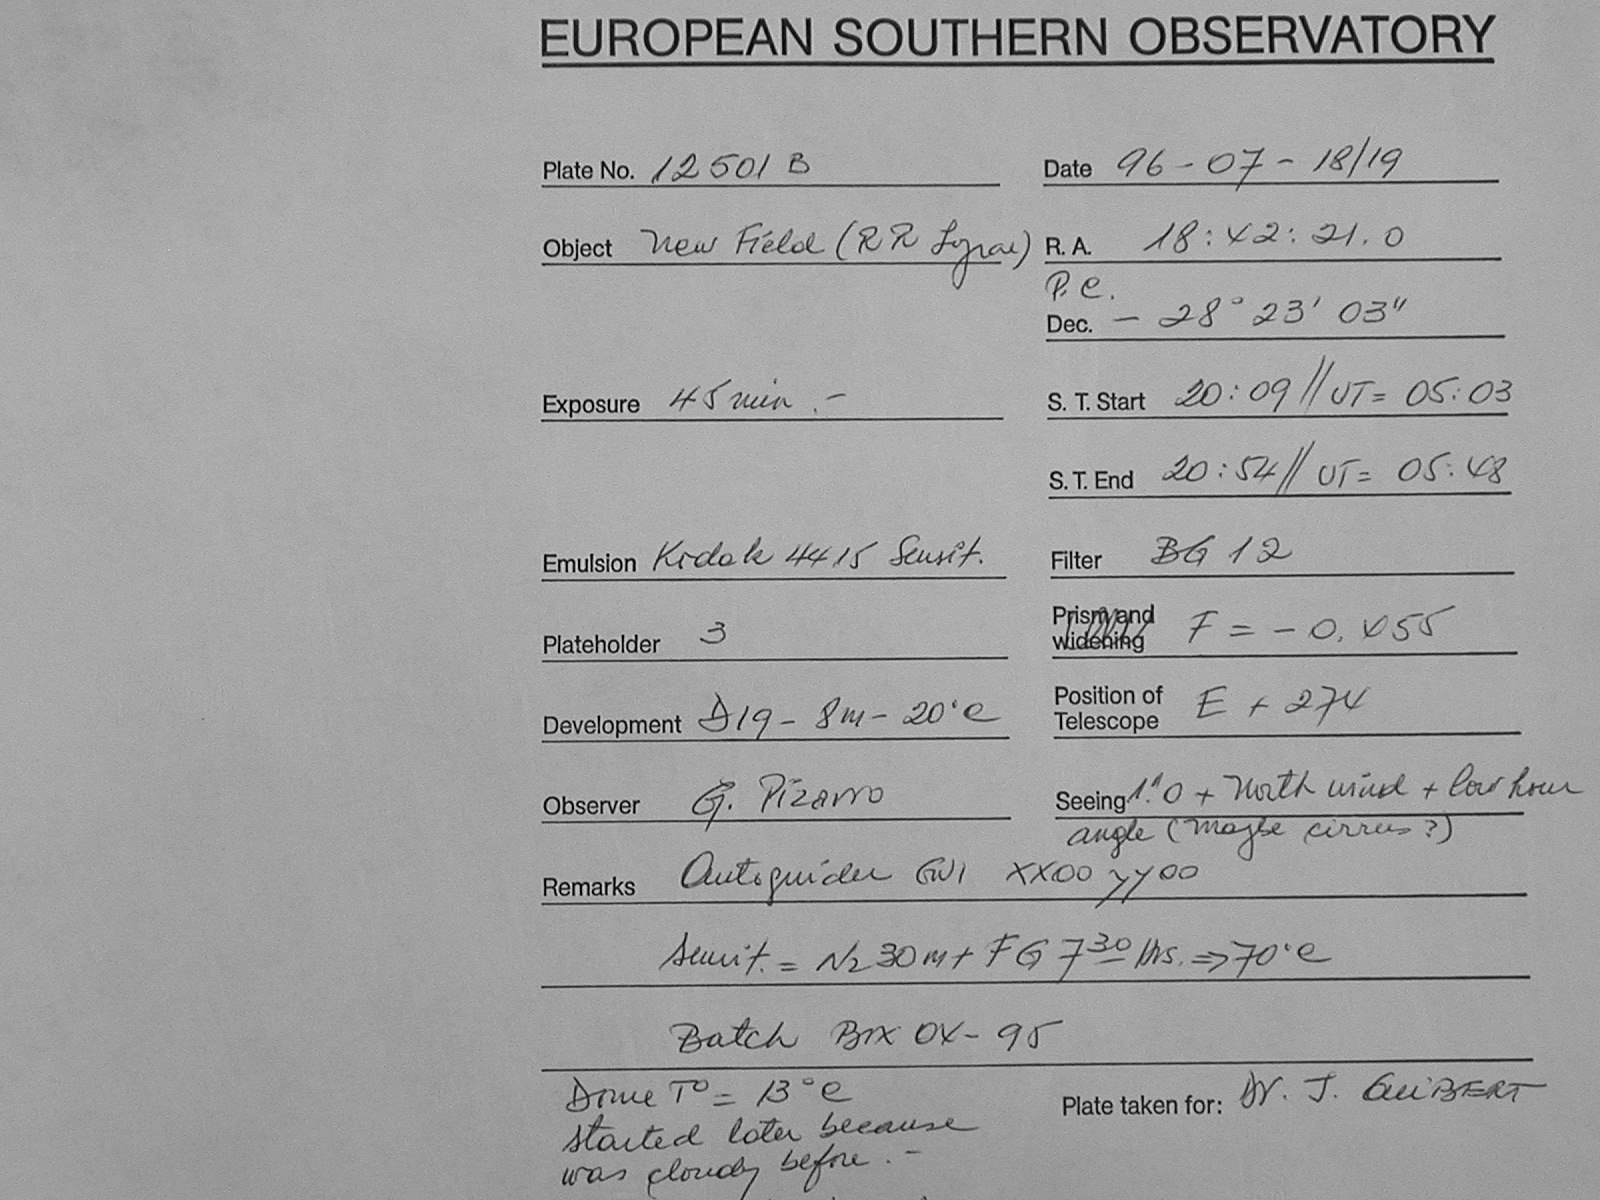 EUROPEAN SOUTHERN OBSERVATORY
Plate No. 12501 B Date 96-07-18/19
Object New Field (RR Lyrae) R. A. 18:42:21.0
P.C.
Dec. - 28° 23' 03"
Exposure 45 min.- S. T. Start 20:09 // UT= 05:03
S. T. End 20:54 // UT= 05:48
Emulsion Kodak 4415 Sensit. Filter BG 12
Plateholder 3 Prism and widening F = - 0.455
Development D19 - 8m - 20°C Position of Telescope E + 274
Observer G. Pizarro Seeing 1."0 + North wind + low hour
angle (Maybe cirrus?)
Remarks Autoguider GW1 XX00 YY00
Sensit. = N2 30m + FG 7 30 hrs. => 70°C
Batch Box 04-95
Dome T° = 13°C Plate taken for: Dr. J. GUIBERT
started later because
was cloudy before.-